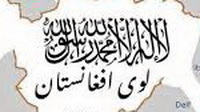 لا إله إلا الله محمد رسول الله
لوی افغانستان